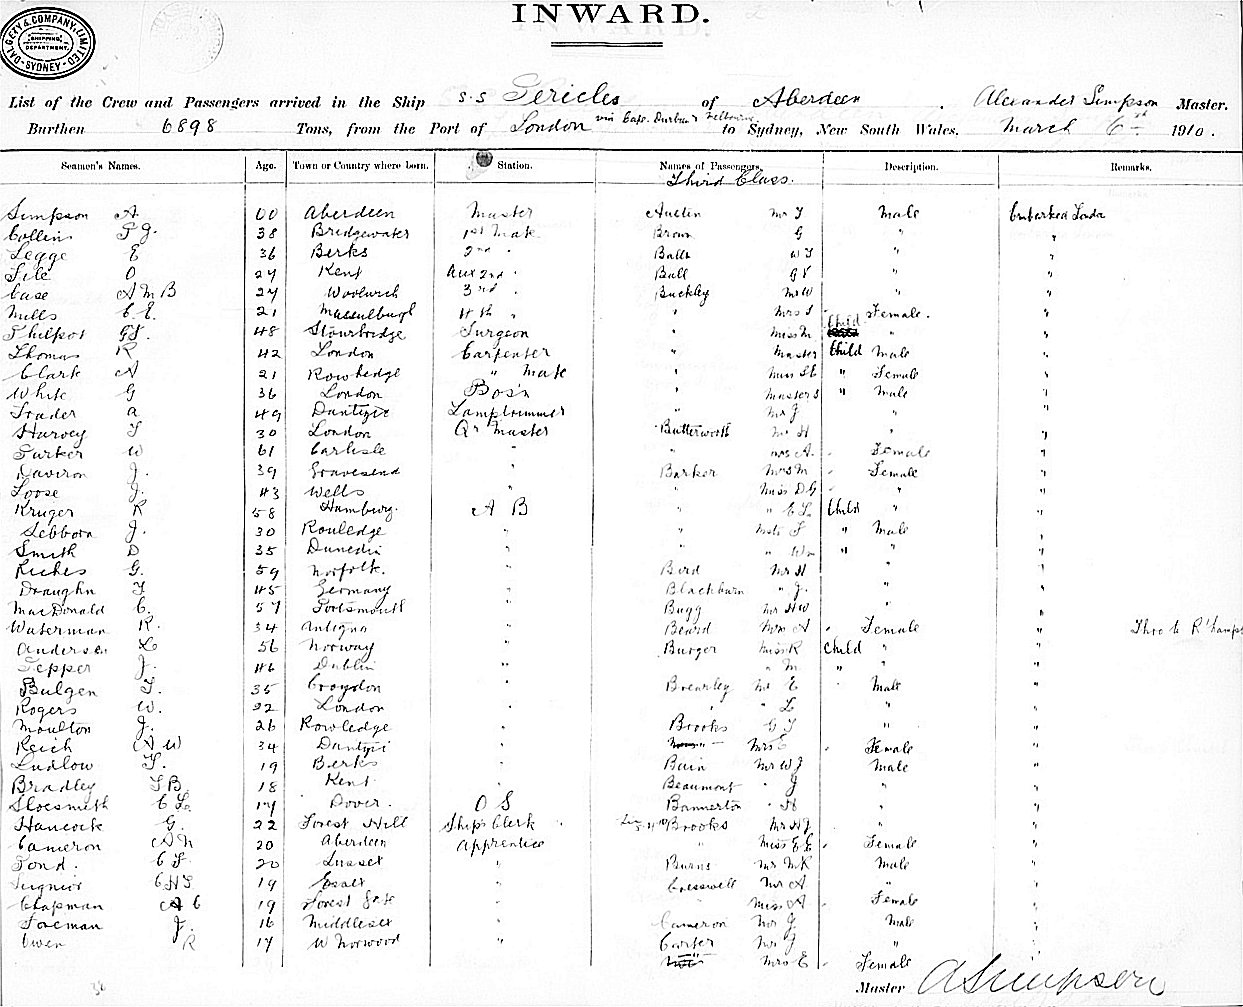 DALGETY & COMPANY, LIMITED
SHIPPING DEPARTMENT.
SYDNEY
INWARD.
List of the Crew and Passengers arrived in the Ship S.S Pericles of Aberdeen. Alexander Simpson Master.
Burthen 6898 Tons, from the Port of London via Cape. Durban & Melbourne to Sydney, New South Wales. March 6 1910.
Seamen's Names. Age. Town or Country where born. Station. Names of Passengers. Description. Remarks.
Third Class.
Simpson A 00 Aberdeen Master Austin Mr T Male Embarked London
Collins 38 Bridgewater 1st Mate Brown G "
Legge E 36 Berks 2nd " Balls W T " "
File O 27 Kent Aux 2nd " Ball " "
Case A M B 27 Woolwich 3rd " Buckley Mr W " "
Mills C E. 21 Musselburgh 4th " " Mrs Female. "
Philpot 48 Stourbridge Surgeon " Miss M Child " "
Thomas R 42 London Carpenter " Master Child Male "
Clark A 21 Rowhedge " Mate " Miss " Female "
White G 36 London Bos'n " Master S " Male "
Trader A 49 Dantzic Lamptrimmer " Mr J " "
Harvey T 30 London Qr Master Butterworth Mr H " "
Parker W 61 Carlisle " " Mrs A. Female "
J. 39 Gravesend " Barker Mrs M Female "
Loose J. 43 Wells " " Miss D G " "
Kruger R 58 Hamburg. A B " " Child " "
J. 30 " " " Male "
Smith D 35 Dunedin " " " Wm " " "
Riches G. 59 Norfolk. " Bird Mr H " "
Draughn T 45 Germany " Blackburn " J. " "
MacDonald C. 57 Portsmouth " Bugg Mr H W " "
Waterman R. 34 Antigua " Beard Mrs A Female " Thro to R'hampton
Andersen L 56 Norway " Burger Miss R Child " "
Pepper J. 46 Dublin " " " M " " "
Bulgen T. 35 Croydon " Brearley Mr E Male "
Rogers W. 22 London " " " L " "
Moulton J. 26 Rowledge " Brooks G T " "
Reich A W 34 Dantzic " " Mrs E Female "
Ludlow T. 19 Berks " Bain Mr W J Male "
Bradley T B 18 Kent " Beaumont " J " "
Shoesmith 17 Dover. O S Bannerton " H " "
Hancock G. 22 Forest Hill Ship's Clerk Brooks Mr H J " "
Cameron A N 20 Aberdeen Apprentice " Miss E E Female "
Pond. C F 20 Sussex " Burns Mr M K Male "
C H S 19 Essex " Cresswell Mr A " "
Chapman A C 19 Forest Gate " " Miss A Female "
Foreman J. 16 Middlesex " Cameron Mr J Male "
Owen R 17 W Norwood " Carter Mr J " "
" Mrs E Female "
Master A Simpson